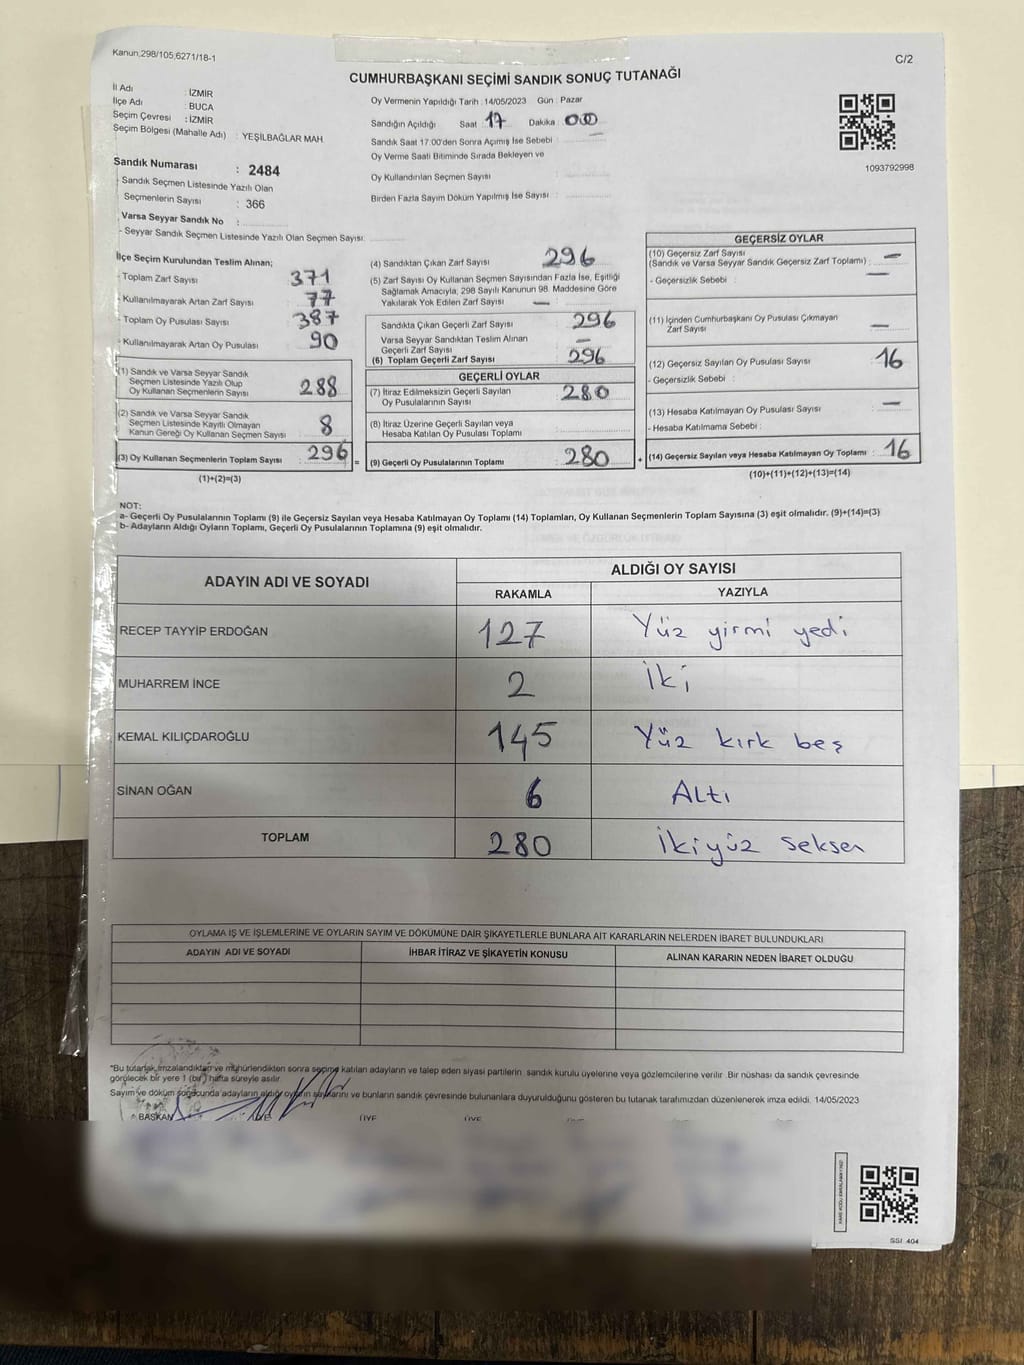 Kanun,298/105,6271/18-1
C/2
CUMHURBAŞKANI SEÇİMİ SANDIK SONUÇ TUTANAĞI
İl Adı : İZMİR
İlçe Adı : BUCA
Seçim Çevresi : İZMİR
Seçim Bölgesi (Mahalle Adı) : YEŞİLBAĞLAR MAH.
Sandık Numarası : 2484
- Sandık Seçmen Listesinde Yazılı Olan
Seçmenlerin Sayısı : 366
Varsa Seyyar Sandık No :
- Seyyar Sandık Seçmen Listesinde Yazılı Olan Seçmen Sayısı:
Oy Vermenin Yapıldığı Tarih :14/05/2023 Gün : Pazar
Sandığın Açıldığı Saat : 17 Dakika : 00
Sandık Saat 17:00'den Sonra Açımış İse Sebebi : —
Oy Verme Saati Bitiminde Sırada Bekleyen ve
Oy Kullandırılan Seçmen Sayısı :
Birden Fazla Sayım Döküm Yapılmış İse Sayısı :
1093792998
İlçe Seçim Kurulundan Teslim Alınan;
- Toplam Zarf Sayısı : 371
- Kullanılmayarak Artan Zarf Sayısı : 77
- Toplam Oy Pusulası Sayısı : 387
- Kullanılmayarak Artan Oy Pusulası : 90
(1) Sandık ve Varsa Seyyar Sandık
Seçmen Listesinde Yazılı Olup
Oy Kullanan Seçmenlerin Sayısı : 288
(2) Sandık ve Varsa Seyyar Sandık
Seçmen Listesinde Kayıtlı Olmayan
Kanun Gereği Oy Kullanan Seçmen Sayısı : 8
(3) Oy Kullanan Seçmenlerin Toplam Sayısı : 296 =
(1)+(2)=(3)
(4) Sandıktan Çıkan Zarf Sayısı : 296
(5) Zarf Sayısı Oy Kullanan Seçmen Sayısından Fazla İse, Eşitliği
Sağlamak Amacıyla, 298 Sayılı Kanunun 98. Maddesine Göre
Yakılarak Yok Edilen Zarf Sayısı : —
Sandıkta Çıkan Geçerli Zarf Sayısı : 296
Varsa Seyyar Sandıktan Teslim Alınan
Geçerli Zarf Sayısı : —
(6) Toplam Geçerli Zarf Sayısı : 296
GEÇERLİ OYLAR
(7) İtiraz Edilmeksizin Geçerli Sayılan
Oy Pusulalarının Sayısı : 280
(8) İtiraz Üzerine Geçerli Sayılan veya
Hesaba Katılan Oy Pusulası Toplamı :
(9) Geçerli Oy Pusulalarının Toplamı : 280 +
GEÇERSİZ OYLAR
(10) Geçersiz Zarf Sayısı
(Sandık ve Varsa Seyyar Sandık Geçersiz Zarf Toplamı) : —
- Geçersizlik Sebebi : —
(11) İçinden Cumhurbaşkanı Oy Pusulası Çıkmayan
Zarf Sayısı : —
(12) Geçersiz Sayılan Oy Pusulası Sayısı : 16
- Geçersizlik Sebebi :
(13) Hesaba Katılmayan Oy Pusulası Sayısı : —
- Hesaba Katılmama Sebebi :
(14) Geçersiz Sayılan veya Hesaba Katılmayan Oy Toplamı : 16
(10)+(11)+(12)+(13)=(14)
NOT:
a- Geçerli Oy Pusulalarının Toplamı (9) ile Geçersiz Sayılan veya Hesaba Katılmayan Oy Toplamı (14) Toplamları, Oy Kullanan Seçmenlerin Toplam Sayısına (3) eşit olmalıdır. (9)+(14)=(3)
b- Adayların Aldığı Oyların Toplamı, Geçerli Oy Pusulalarının Toplamına (9) eşit olmalıdır.
ADAYIN ADI VE SOYADI
ALDIĞI OY SAYISI
RAKAMLA YAZIYLA
RECEP TAYYİP ERDOĞAN 127 Yüz yirmi yedi
MUHARREM İNCE 2 İki
KEMAL KILIÇDAROĞLU 145 Yüz kırk beş
SİNAN OĞAN 6 Altı
TOPLAM 280 İkiyüz seksen
OYLAMA İŞ VE İŞLEMLERİNE VE OYLARIN SAYIM VE DÖKÜMÜNE DAİR ŞİKAYETLERLE BUNLARA AİT KARARLARIN NELERDEN İBARET BULUNDUKLARI
ADAYIN ADI VE SOYADI İHBAR İTİRAZ VE ŞİKAYETİN KONUSU ALINAN KARARIN NEDEN İBARET OLDUĞU
"Bu tutanak,imzalandıktan ve mühürlendikten sonra seçime katılan adayların ve talep eden siyasi partilerin sandık kurulu üyelerine veya gözlemcilerine verilir. Bir nüshası da sandık çevresinde
görülecek bir yere 1 (bir) hafta süreyle asılır.
Sayım ve döküm sonucunda adayların aldığı oyların sayılarını ve bunların sandık çevresinde bulunanlara duyurulduğunu gösteren bu tutanak tarafımızdan düzenlenerek imza edildi. 14/05/2023
BAŞKAN ÜYE ÜYE ÜYE
SSİ .404